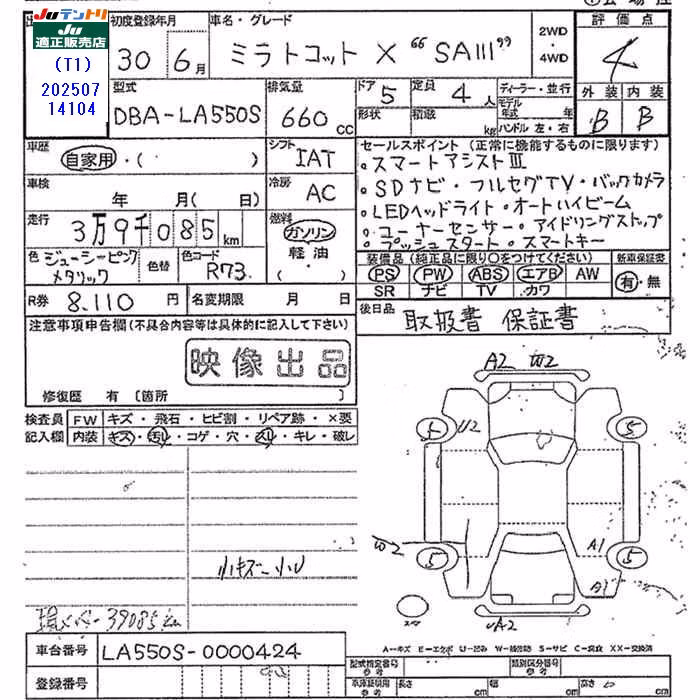 JUテントリ
JU適正販売店
(T1)
202507
14104
初度登録年月
30 6月
車名・グレード
ミラトコット X “SAIII”
2WD
・
4WD
評価点
4
外装 内装
B B
型式
DBA-LA550S
排気量
660 CC
ドア 5
形状
定員 4 人
積載 kg
ディーラー・並行
モデル年式 年
ハンドル 左・右
車歴
自家用・( )
シフト
IAT
車検
年 月( 日)
冷房
AC
走行
3万9千085 km
燃料
ガソリン
軽油
・( )
色 ジューシーピンクメタリック
色替
色コード
R73
セールスポイント (正常に機能するものに限ります)
・スマートアシストIII
・SDナビ・フルセグTV・バックカメラ
・LEDヘッドライト・オートハイビーム
・コーナーセンサー・アイドリングストップ
・プッシュスタート・スマートキー
装備品 (純正品に限り○をつけてください)
新車保証書
PS PW ABS エアB AW
SR ナビ TV カワ
有・無
R券 8,110 円
名変期限 月 日
後日品
取扱書 保証書
注意事項申告欄(不具合内容等は具体的に記入して下さい)
映像出品
修復歴 有 〔箇所 〕
検査員
記入欄
FW キズ・飛石・ヒビ割・リペア跡・×要
内装 キズ・汚レ・コゲ・穴・スレ・キレ・破レ
小キズ 小U
現メーター39085km
A2 W2
5 U2 5
W2 5 A1 5
A1
A2
A-キズ E-エクボ U-凹み W-補修跡 S-サビ C-腐食 XX-交換済
車台番号 LA550S-0000424
登録番号
型式指定番号
類別区分番号
車庫証明用参考
長さ cm
幅 cm
高さ cm